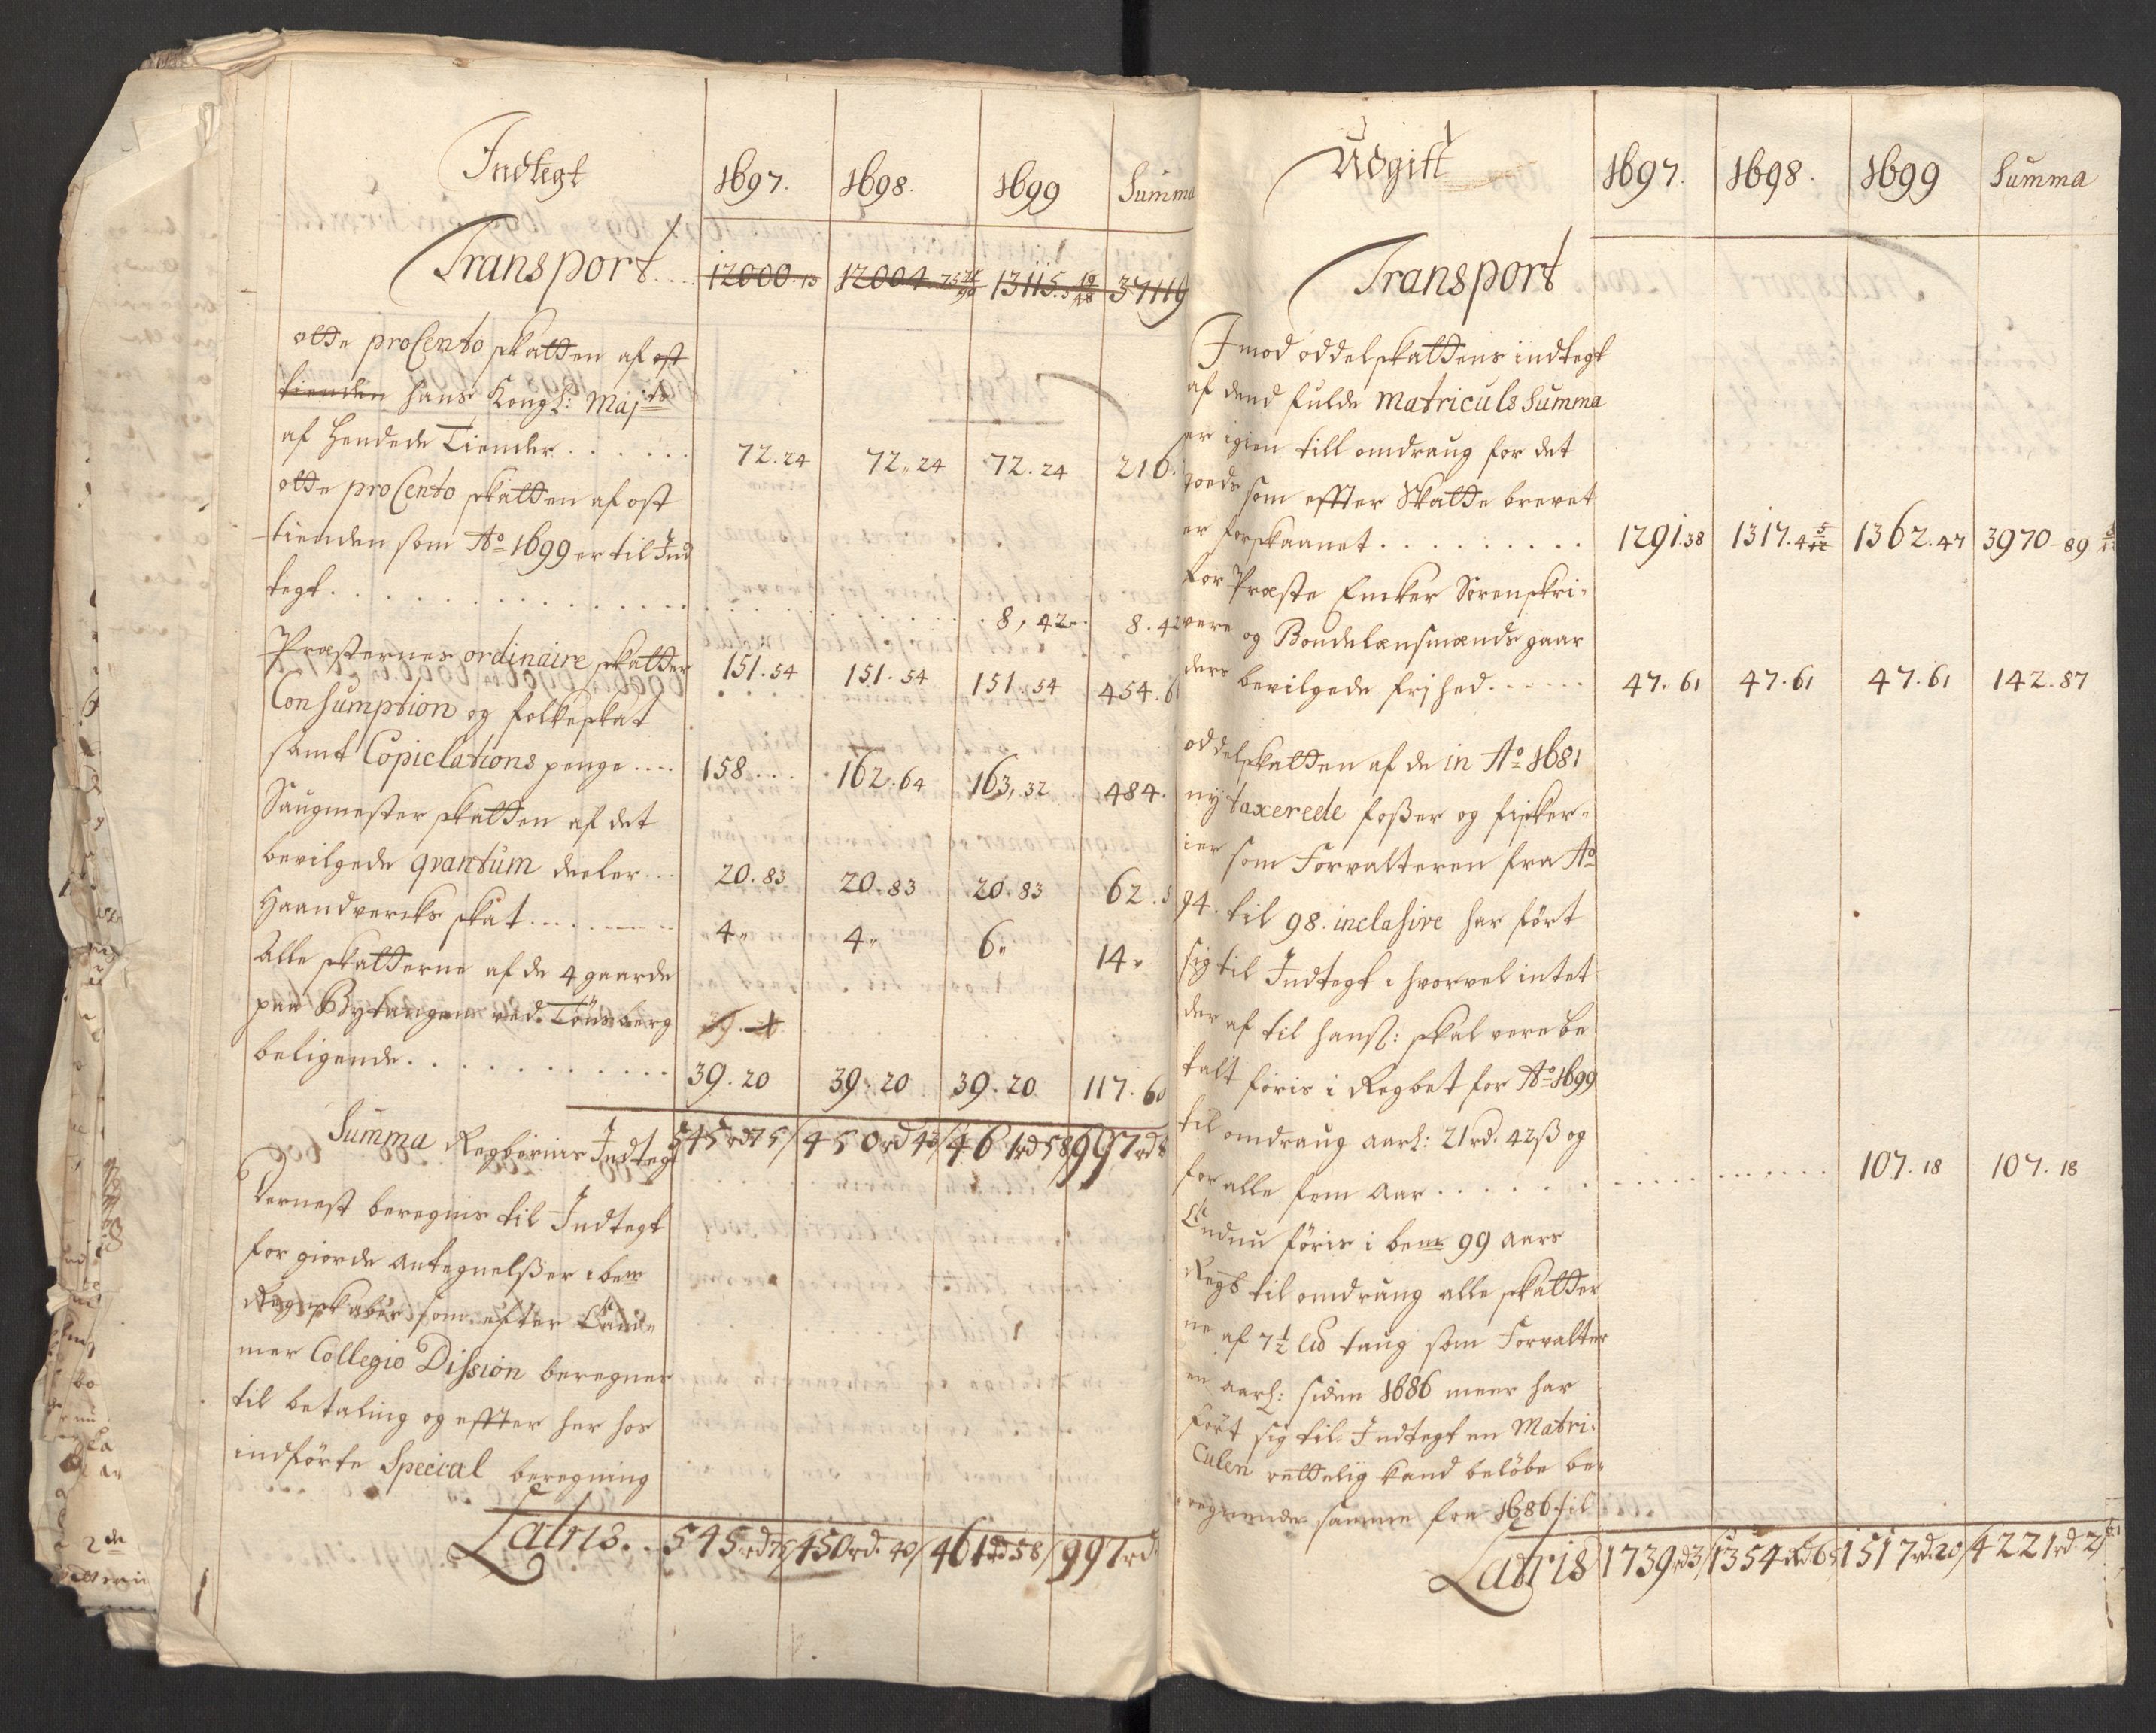 Indtegt 1697. 1698. 1699 Summa
Transport.... 12000.13 12004.75 13115.5 19/48 37119
otte pro Cento skatten af ost
tienden hans Kongl: Maj:ts
af hendede Tiender...... 72.24 72.24 72.24 216.
otte pro Cento skatten af ost
tienden som Ao 1699 er til Ind
tegt............... 8,42 8.42
Præsternes ordinaire skatter 151.54 151.54 151.54 454.6
Consumption og folkeskat
samt Copiclations penge.... 158... 162.64 163,32 484.
Saugmester skatten af det
bevilgede qvantum deeler... 20.83 20.83 20.83 62.5
Haandvercks skat......... 4" 4" 6" 14"
Alle skatterne af de 4 gaarde
paa Bytangen ved Tönsberg
beligende............ 39.20 39.20 39.20 117.60
Summa Regberns Indtegt 545rd75/ 450rd43/ 461rd58 997rd
Dernest beregnis til Indtegt
for giorde antegnelsßer i bem
Regnskaber som efter Cam-
mer Collegio Dission beregner
til betaling og effter her hos
indførte Special beregning
Latris.. 545rd75/ 450rd.40/ 461rd58/ 997rd
Udgift 1697. 1698. 1699 Summa
Transport
Imod oddelskattens indtegt
af dend fulde Matriculs Summa
er igien till omdraug for det
goeds som effter Skatte brevet
er forskaanet......... 1291.38 1317.4 5/12 1362.47 3970-89
for Præste Encker Sorenskri-
vere og Bondelensmænds gaar
ders bevilgede frihed...... 47.61 47.61 47.61 142.87
oddelskatten af de in Ao 1681
ny taxerede foßer og fisker-
ier som Forvalteren fra Ao
94. til 98. inclusive har ført
sig til Indtegt i hvorvel intet
der af til hansß: skal vere be
talt føris i Regbet for Ao 1699
til omdraug aarl: 21rd. 42ß og
for alle fem aar............ 107.18 107.18
Endnu føris i bem 99 aars
Regb til omdraug alle skatter
ne af 7½ ld taug som Forvalter
en aarl: siden 1686 meer har
ført sig til Indtegt en Matri-
culen rettelig kand beløbe be-
regnende samme fra 1686 til
Latris 1739rd3/ 1354rd65/ 1517rd.20/ 4221rd.2